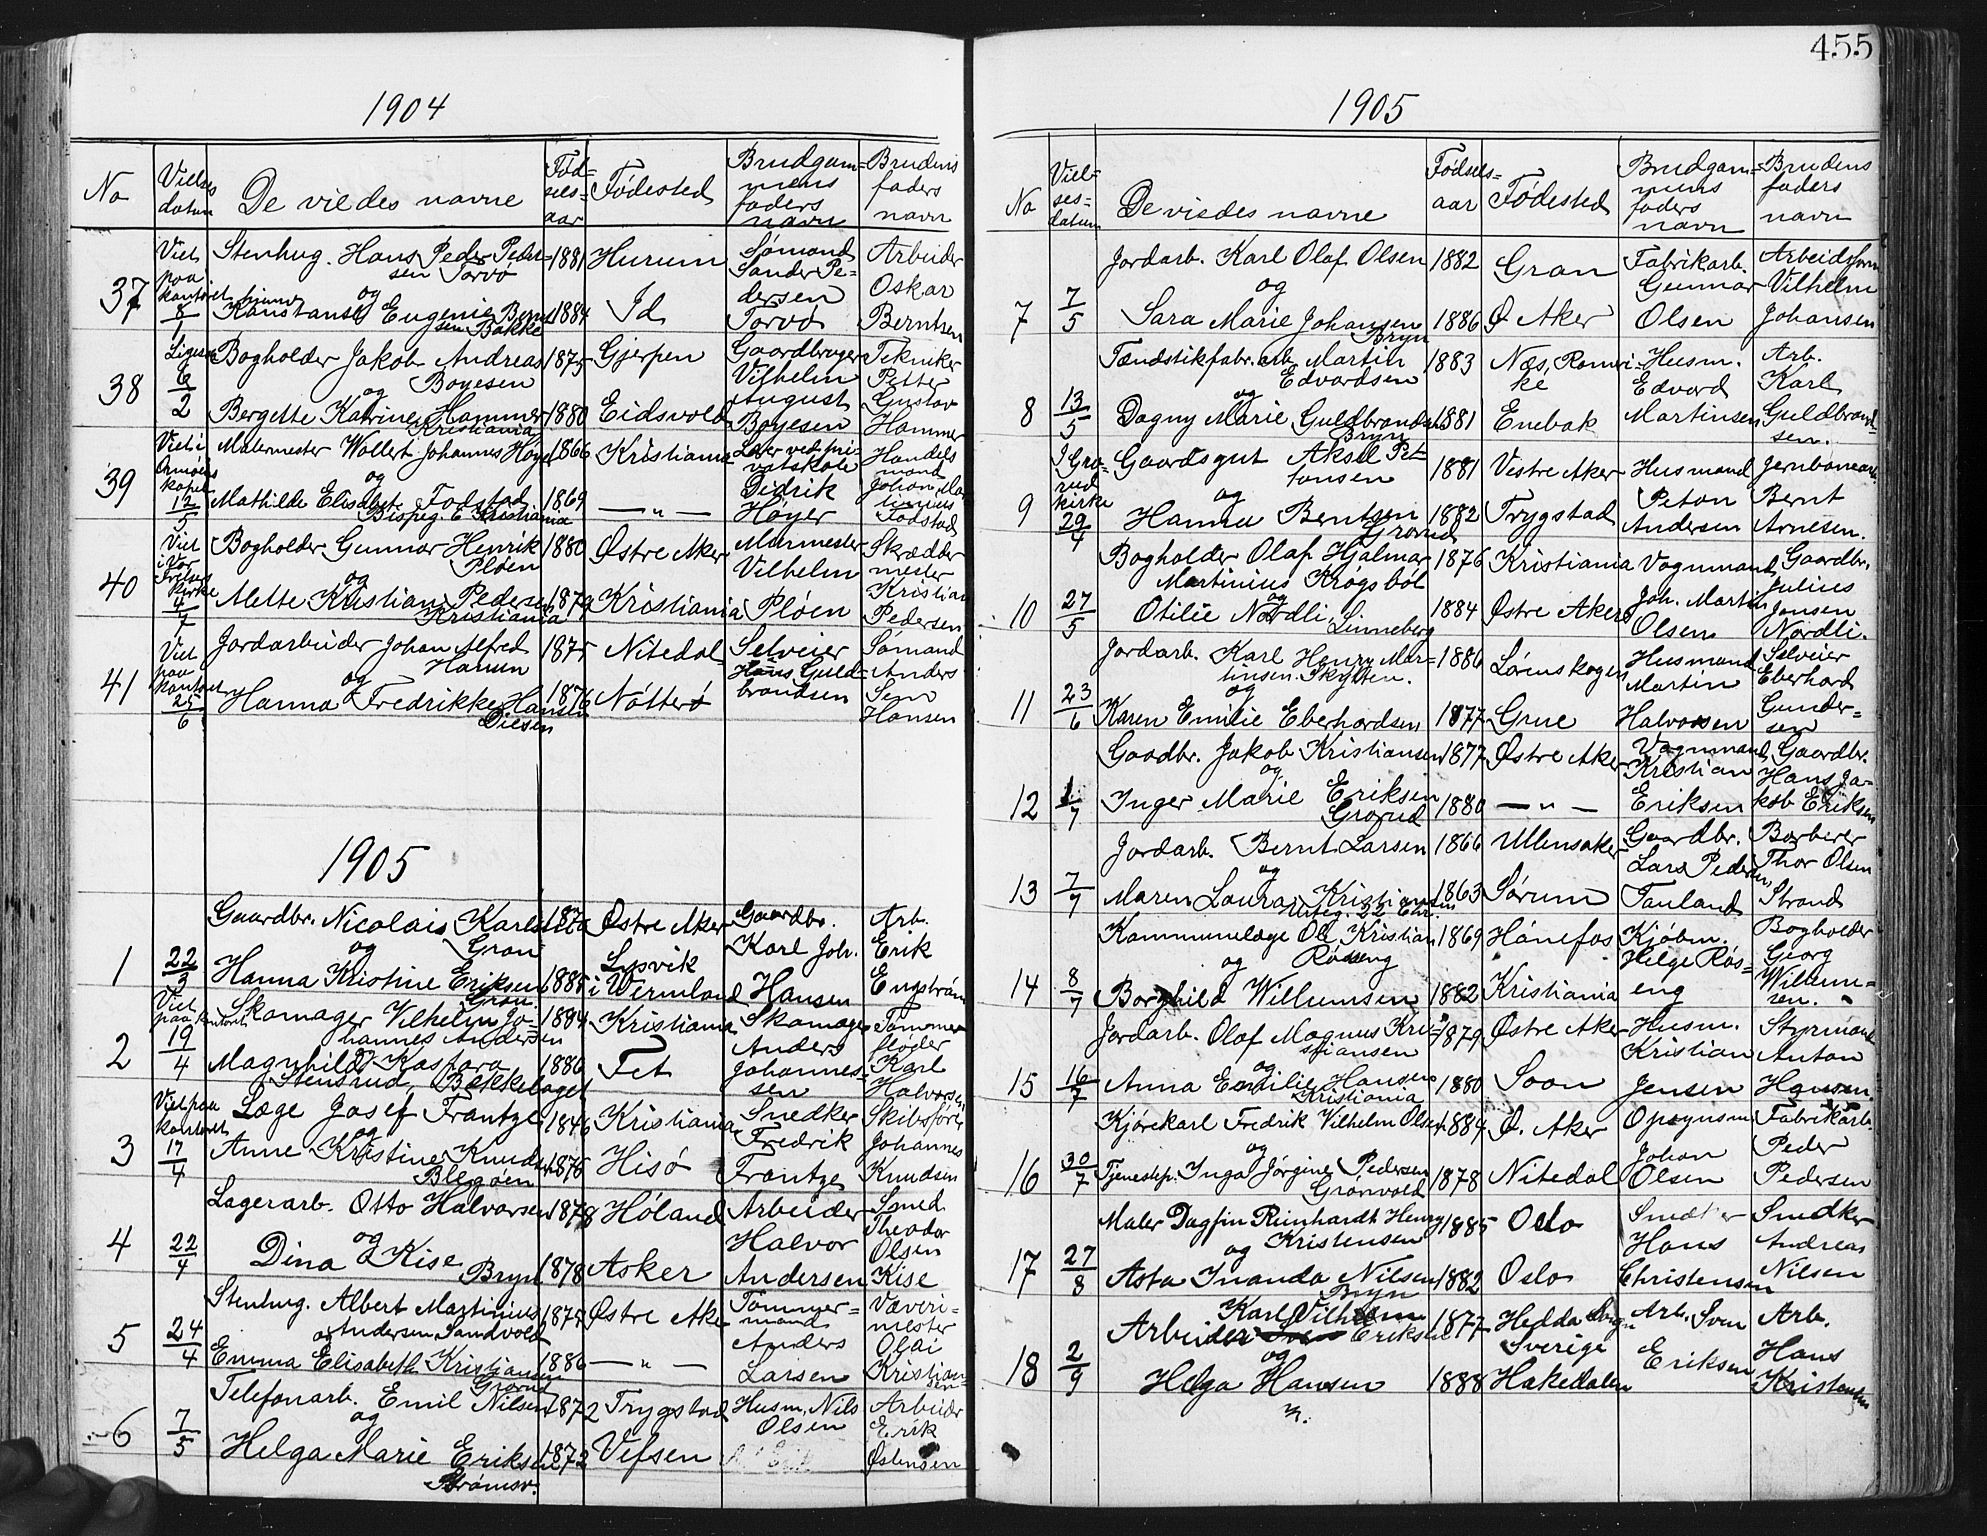 1904
No
Vielses datum
De viedes navne
Fødselsaar
Fødested
Brudgommens faders navn
Brudens faders navn
37
Viet paa kontoret 8/1
Stenhug. Hans Peder Pedersen Torvø
og
Konstanse Eugenie Berntsen Bakke
1881
1884
Hurum
Id
Sømand Sander Pedersen Torvø
Arbeider Oskar Berntsen
38
6/2
Bogholder Jakob Andreas Boyesen
og
Bergette Katrine Hammer
Kristiania
1875
1880
Gjerpen
Eidsvold
Gaardbruger Vilhelm August Boyesen
Tekniker Petter Gustav Hammer
39
Viet i kapel 12/5
Malermester Wollert Johannes Høyer
og
Mathilde Elisabet Fodstad
Bispeg. 6 Kristiania
1866
1869
Kristiania
— " —
Lærer ved privatskole Didrik Høyer
Handelsmand Johan Martinius Fodstad
40
Viet i Vor Frelsers kirke 4/7
Bogholder Gunnar Henrik Pløen
og
Mette Kristian Pedersen
Kristiania
1880
1879
Østre Aker
Kristiania
Murmester Vilhelm Pløen
Skræddermester Kristian Pedersen
41
Viet paa kontoret 25/6
Jordarbeider Johan Alfred Hansen
og
Hanna Fredrikke Hansen Diesen
1875
1876
Nitedal
Nøtterø
Selveier Hans Guldbrandsen
Sømand Anders Sem Hansen
1905
1
22/3
Gaardbr. Nicolais Karlsen Gran
og
Hanna Kristine Eriksen
Gran.
1870
1885
Østre Aker
Lysvik i Wermland
Gaardbr. Karl Joh. Hansen
Arb. Erik Engström
2
Viet paa kontoret 19/4
Skomager Vilhelm Johannes Andersen
og
Magnhild Kastora Stensrud, Bækkelaget
1884
1886
Kristiania
Fet
Skomager Anders Johannessen
Tømmerfløder Karl Halvorsen
3
Viet paa kontoret 17/4
Læge Josef Frantze
og
Anne Kristine Knudsen
Blegøen
1846
1876
Kristiania
Hisø
Snedker Fredrik Frantze
Skibsfører Johannes Knudsen
4
22/4
Lagerarb. Otto Halvorsen
og
Dina Kise
Bryn
1878
1878
Høland
Asker
Arbeider Halvor Andersen
Smed Theodor Olsen Kise
5
24/4
Stenhug. Albert Martinius Andersen Sandvold
og
Emma Elisabeth Kristiansen
Grorud
1877
1886
Østre Aker
— " —
Tømmermand Anders Larsen
Væverimester Olai Kristiansen
6
7/5
Telefonarb. Emil Nilsen
og
Helga Marie Eriksen
Strømsv.
1872
1872
Trygstad
Vefsen
Husm. Nils Olsen
Arbeider Erik Østensen
455
1905
No
Vielsesdatum
De viedes navne
Fødselsaar
Fødested
Brudgommens faders navn
Brudens faders navn
7
7/5
Jordarb. Karl Olaf Olsen
og
Sara Marie Johansen
Bryn
1882
1886
Gran
Ø Aker
Fabrikarb. Gunnar Olsen
Arbeidsform. Vilhelm Johansen
8
13/5
Tændstikfabr. arb. Martin Edvardsen
og
Dagny Marie Guldbrandsen
Bryn
1883
1881
Næs, Romerike
Enebak
Husm. Edvard Martinsen
Arb. Karl Guldbrandsen.
9
I Grorud kirke 29/4
Gaardsgut Aksel Petonsen
og
Hanna Berntsen
Grorud
1881
1882
Vestre Aker
Trygstad
Husmand Peton Andersen
Jernbanearb. Bernt Arnesen.
10
27/5
Bogholder Olaf Hjalmar Martinius Krogsbøl
og
Otilie Nordli
Linneberg
1876
1884
Kristiania
Østre Aker
Vognmand Joh. Martin Olsen
Gaardbr. Julius Jensen Nordli.
11
23/6
Jordarb. Karl Henry Martinsen. Skytten.
og
Karen Emilie Eberhardsen
1886
1877
Lørenskogen
Grue
Husmand Martin Halvorsen
Selveier Eberhard Gundersen
12
1/7
Gaadbr. Jakob Kristiansen
og
Inger Marie Eriksen
Grorud
1877
1880
Østre Aker
— " —
Vognmand Kristian Eriksen
Gaardbr. Hans Jakob Eriksen
13
7/7
Jordarb. Bernt Larsen
og
Maren Laura Kristiansen
1866
1863
Ullensaker
Sørum
Gaardbr. Lars Pedersen Tauland
Barberer Thor Olsen Strand
14
8/7
Kommunelæge Ole Kristian Røseng
og
Borghild Willumsen
1869
1882
Hønefos
Kristiania
Kjøbm. Helge Røseng
Bogholder Georg Willumsen.
15
16/7
Jordarb. Olaf Magnus Kristiansen
og
Anna Emilie Hansen
Kristiania
1879
1880
Østre Aker
Soon
Husm. Kristian Jensen
Styrmand Anton Hansen.
16
30/7
Kjørekarl Fredrik Vilhelm Olsen
og
Tjenestep. Inga Jørgine Pedersen
Grønvold
1884
1878
Ø. Aker
Nitedal
Opsynsm Johan Olsen
Fabrikarb. Peder Pedersen
17
27/8
Maler Dagfin Reinhardt Henry Kristensen
og
Asta Inanda Nilsen
Bryn
1885
1882
Oslo
Oslo
Snedker Hans Christensen
Snedker Andreas Nilsen
18
2/9
Arbeider Karl Vilhelm Eriksen
og
Helga Hansen
1877
1888
Hedda Sogn Sverige
Hakedalen
Arb. Sven Eriksen
Arb. Hans Kristensen